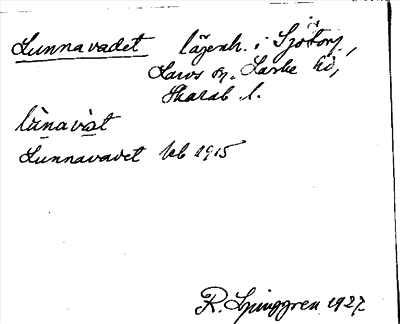 Lunnavadet lägenh. i Sjötorp,
Larvs sn, Laske hd,
Skarab. l.
lùnavàt
Lunnavadet kb 1915
R. Ljunggren 1927